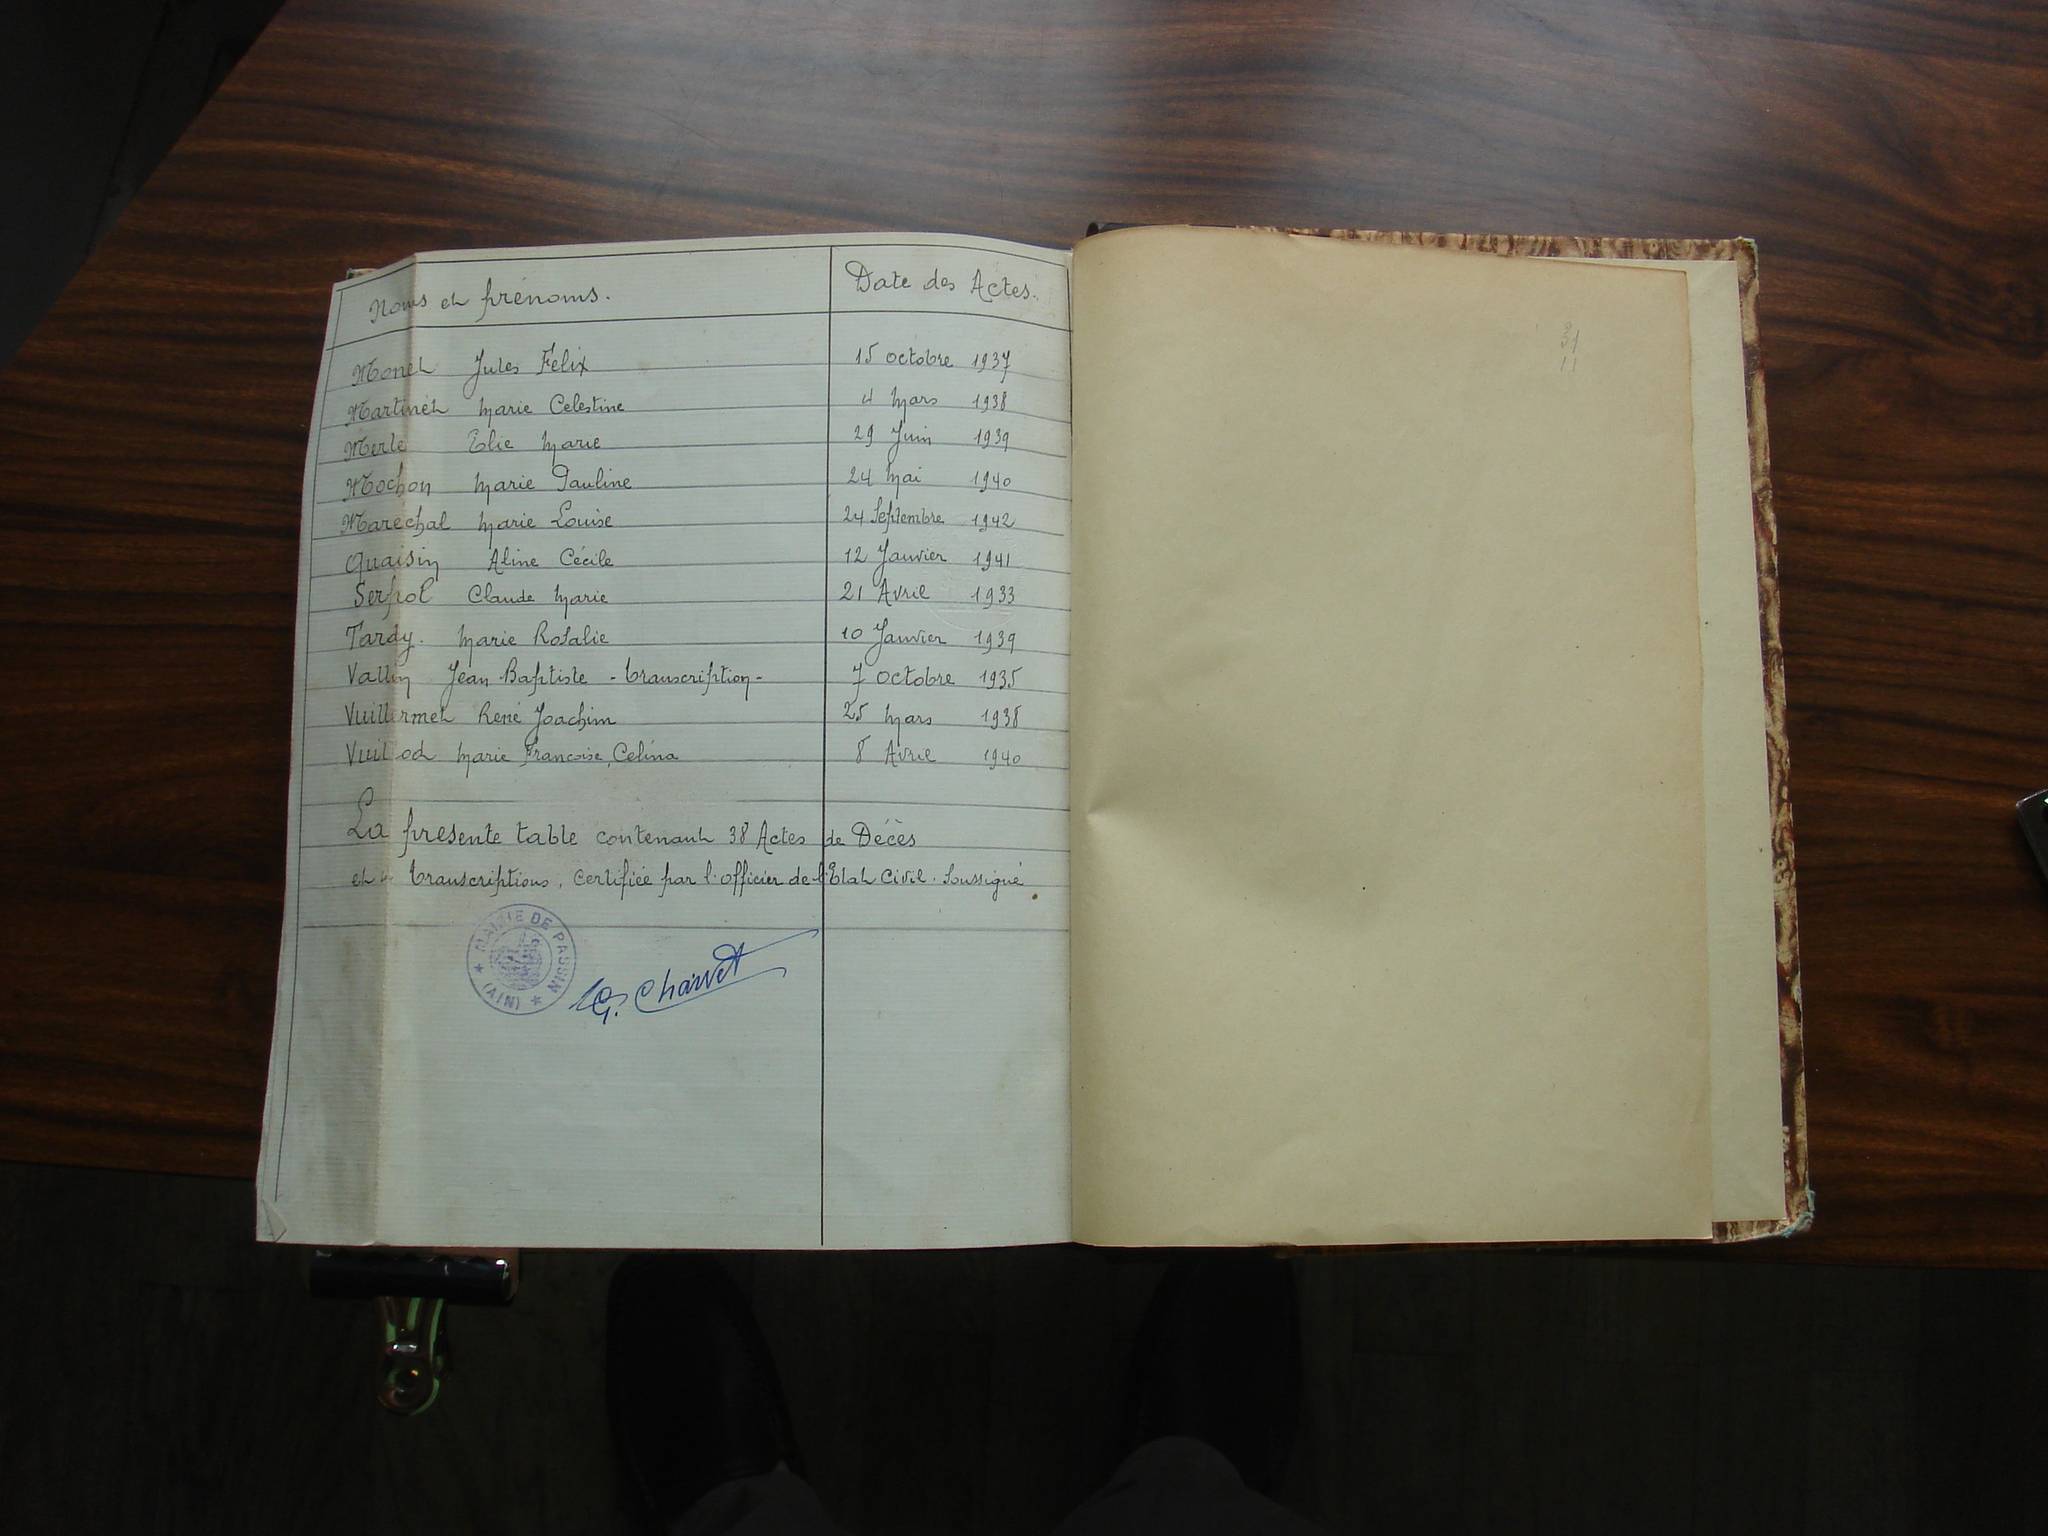 Noms et prénoms. Date des Actes.
Monet Jules Félix 15 octobre 1937
Martinet Marie Celestine 4 Mars 1938
Merle Elie Marie 29 Juin 1939
Mochon Marie Pauline 24 Mai 1940
Marechal Marie Louise 24 Septembre 1942
Quaisin Aline Cécile 12 Janvier 1941
Serpol Claude Marie 21 Avril 1933
Tardy. Marie Rosalie 10 Janvier 1939
Vallin Jean Baptiste - transcription - 7 octobre 1935
Vuillermet René Joachim 25 Mars 1938
Vuillod Marie Francoise, Celina 8 Avril 1940
La présente table contenant 38 Actes de Décès
et transcriptions, certifiée par l'officier de l'Etat Civil. Soussigné
MAIRIE DE PASSIN
(AIN)
G. Charvet
31
11